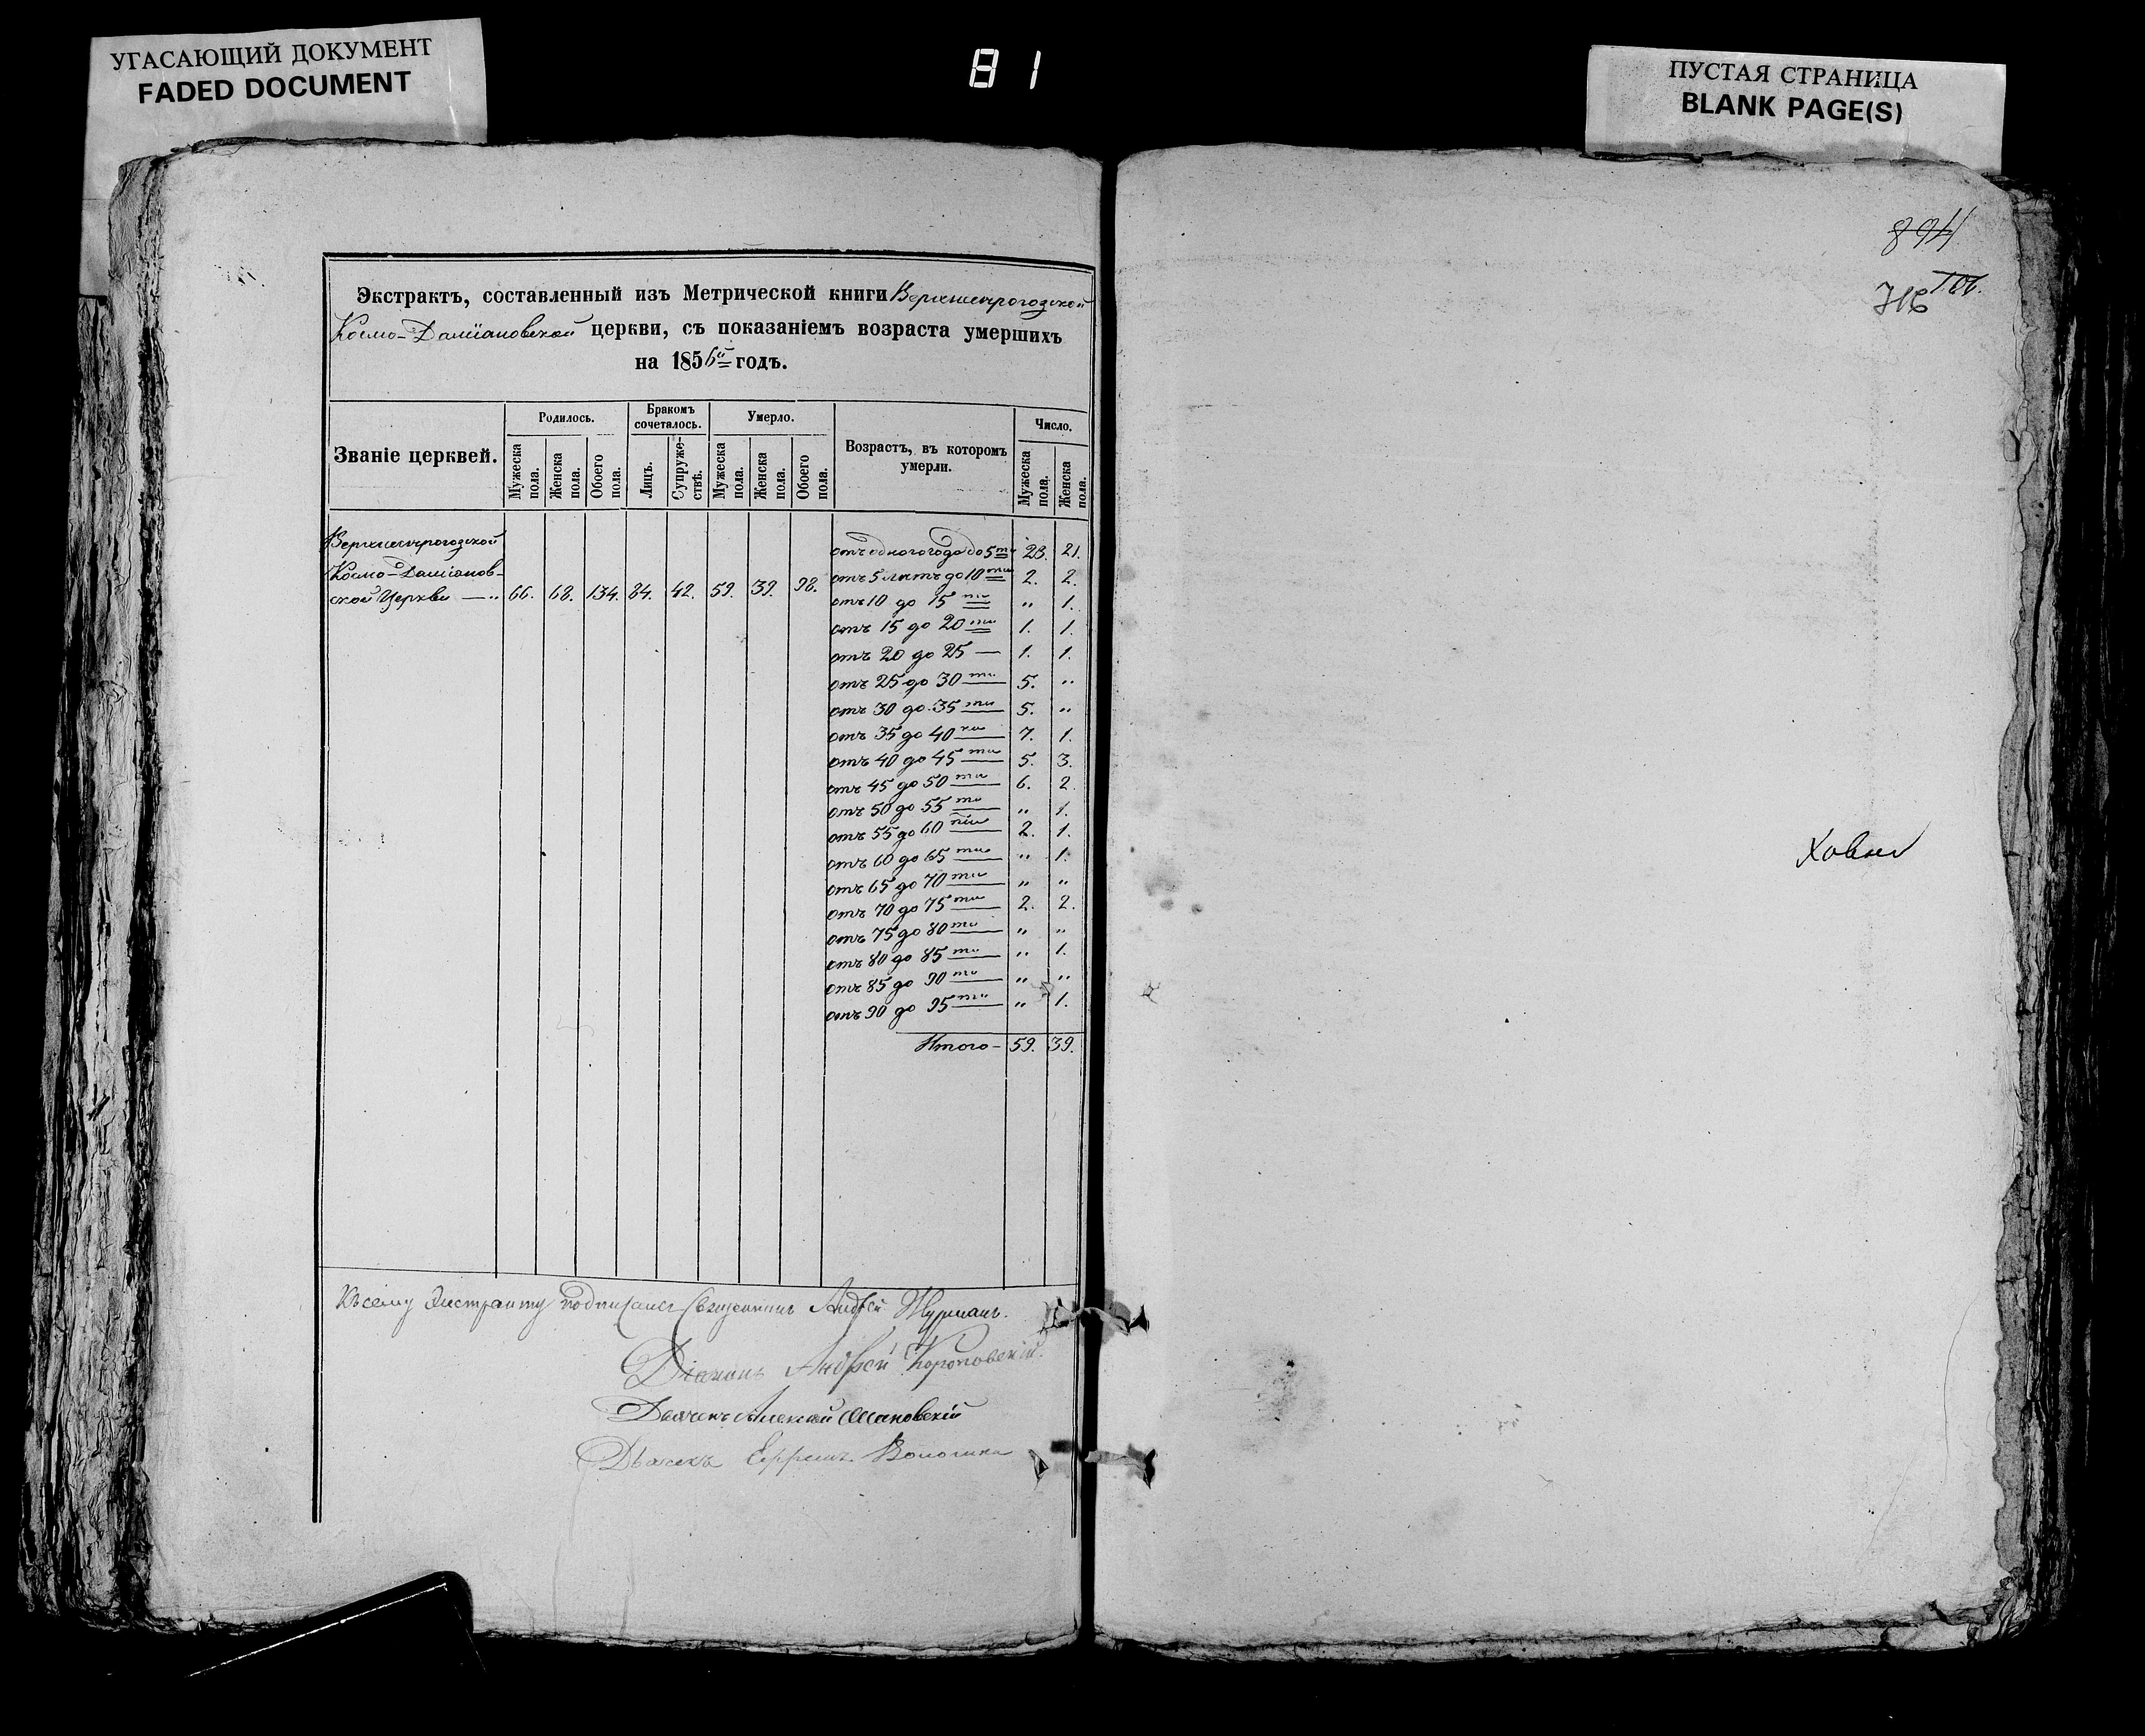 УГАСАЮЩИЙ ДОКУМЕНТ
FADED DOCUMENT
81
ПУСТАЯ СТРАНИЦА
BLANK PAGE(S)
Экстрактъ, составленный изъ Метрической книги Верхнерогозской
Космо-Даміановской церкви, съ показаніемъ возраста умершихъ
на 1856й годъ.
Званіе церквей.
Родилось.
Бракомъ сочеталось.
Умерло.
Возрастъ, въ которомъ умерли.
Число.
Мужеска пола.
Женска пола.
Обоего пола.
Лицъ.
Супружествъ.
Мужеска пола.
Женска пола.
Обоего пола.
Мужеска пола.
Женска пола.
Космо-Даміанов-
ской Церкви — „ 66. 68. 134. 84. 42. 59. 39. 98.
отъ одного года до 5ти 23. 21.
отъ 5 летъ до 10ти 2. 2.
отъ 10 до 15ти „ 1.
отъ 15 до 20ти 1. 1.
отъ 20 до 25 — 1. 1.
отъ 25 до 30ти 5. „
отъ 30 до 35ти 5. „
отъ 35 до 40ка 7. 1.
отъ 40 до 45ти 5. 3.
отъ 45 до 50ти 6. 2.
отъ 50 до 55ти „ 1.
отъ 55 до 60ти 2. 1.
отъ 60 до 65ти „ 1.
отъ 65 до 70ти „ „
отъ 70 до 75ти 2. 2.
отъ 75 до 80ти „ „
отъ 80 до 85ти „ 1.
отъ 85 до 90ти „ „
отъ 90 до 95ти „ 1.
Итого — 59. 39.
Къ сему Экстракту подписались Священникъ Андрей Журманъ.
Діаконъ Андрей
Дьячекъ Алексей
Дьячекъ Ефремъ Волошин
716